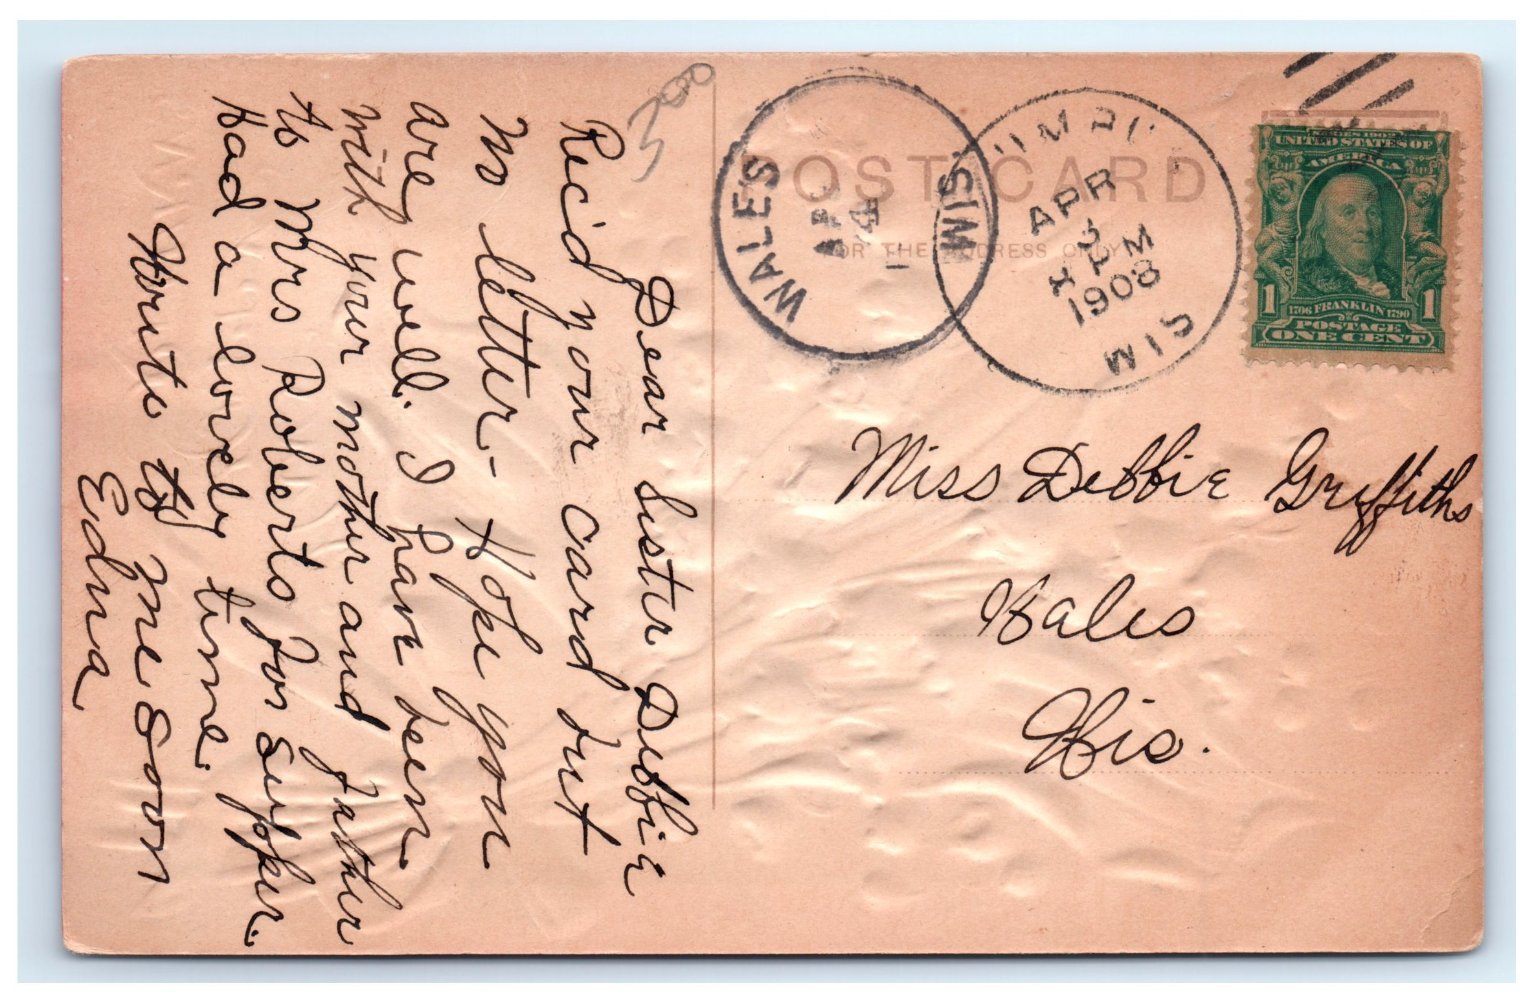 3200
Dear Sister Debbie
Rec'd your card but
no letter - Hope you
are well. I have been
with your mother and father
to Mrs Roberts for supper.
Had a lovely time.
Write to me soon
Edna
POST CARD
FOR THE ADDRESS ONLY
WALES WIS.
APR
4
APR
3
PM
1908
WIS
SERIES 1902
UNITED STATES OF
AMERICA
1 1706 FRANKLIN 1790 1
POSTAGE
ONE CENT
Miss Debbie Griffiths
Wales
Wis.